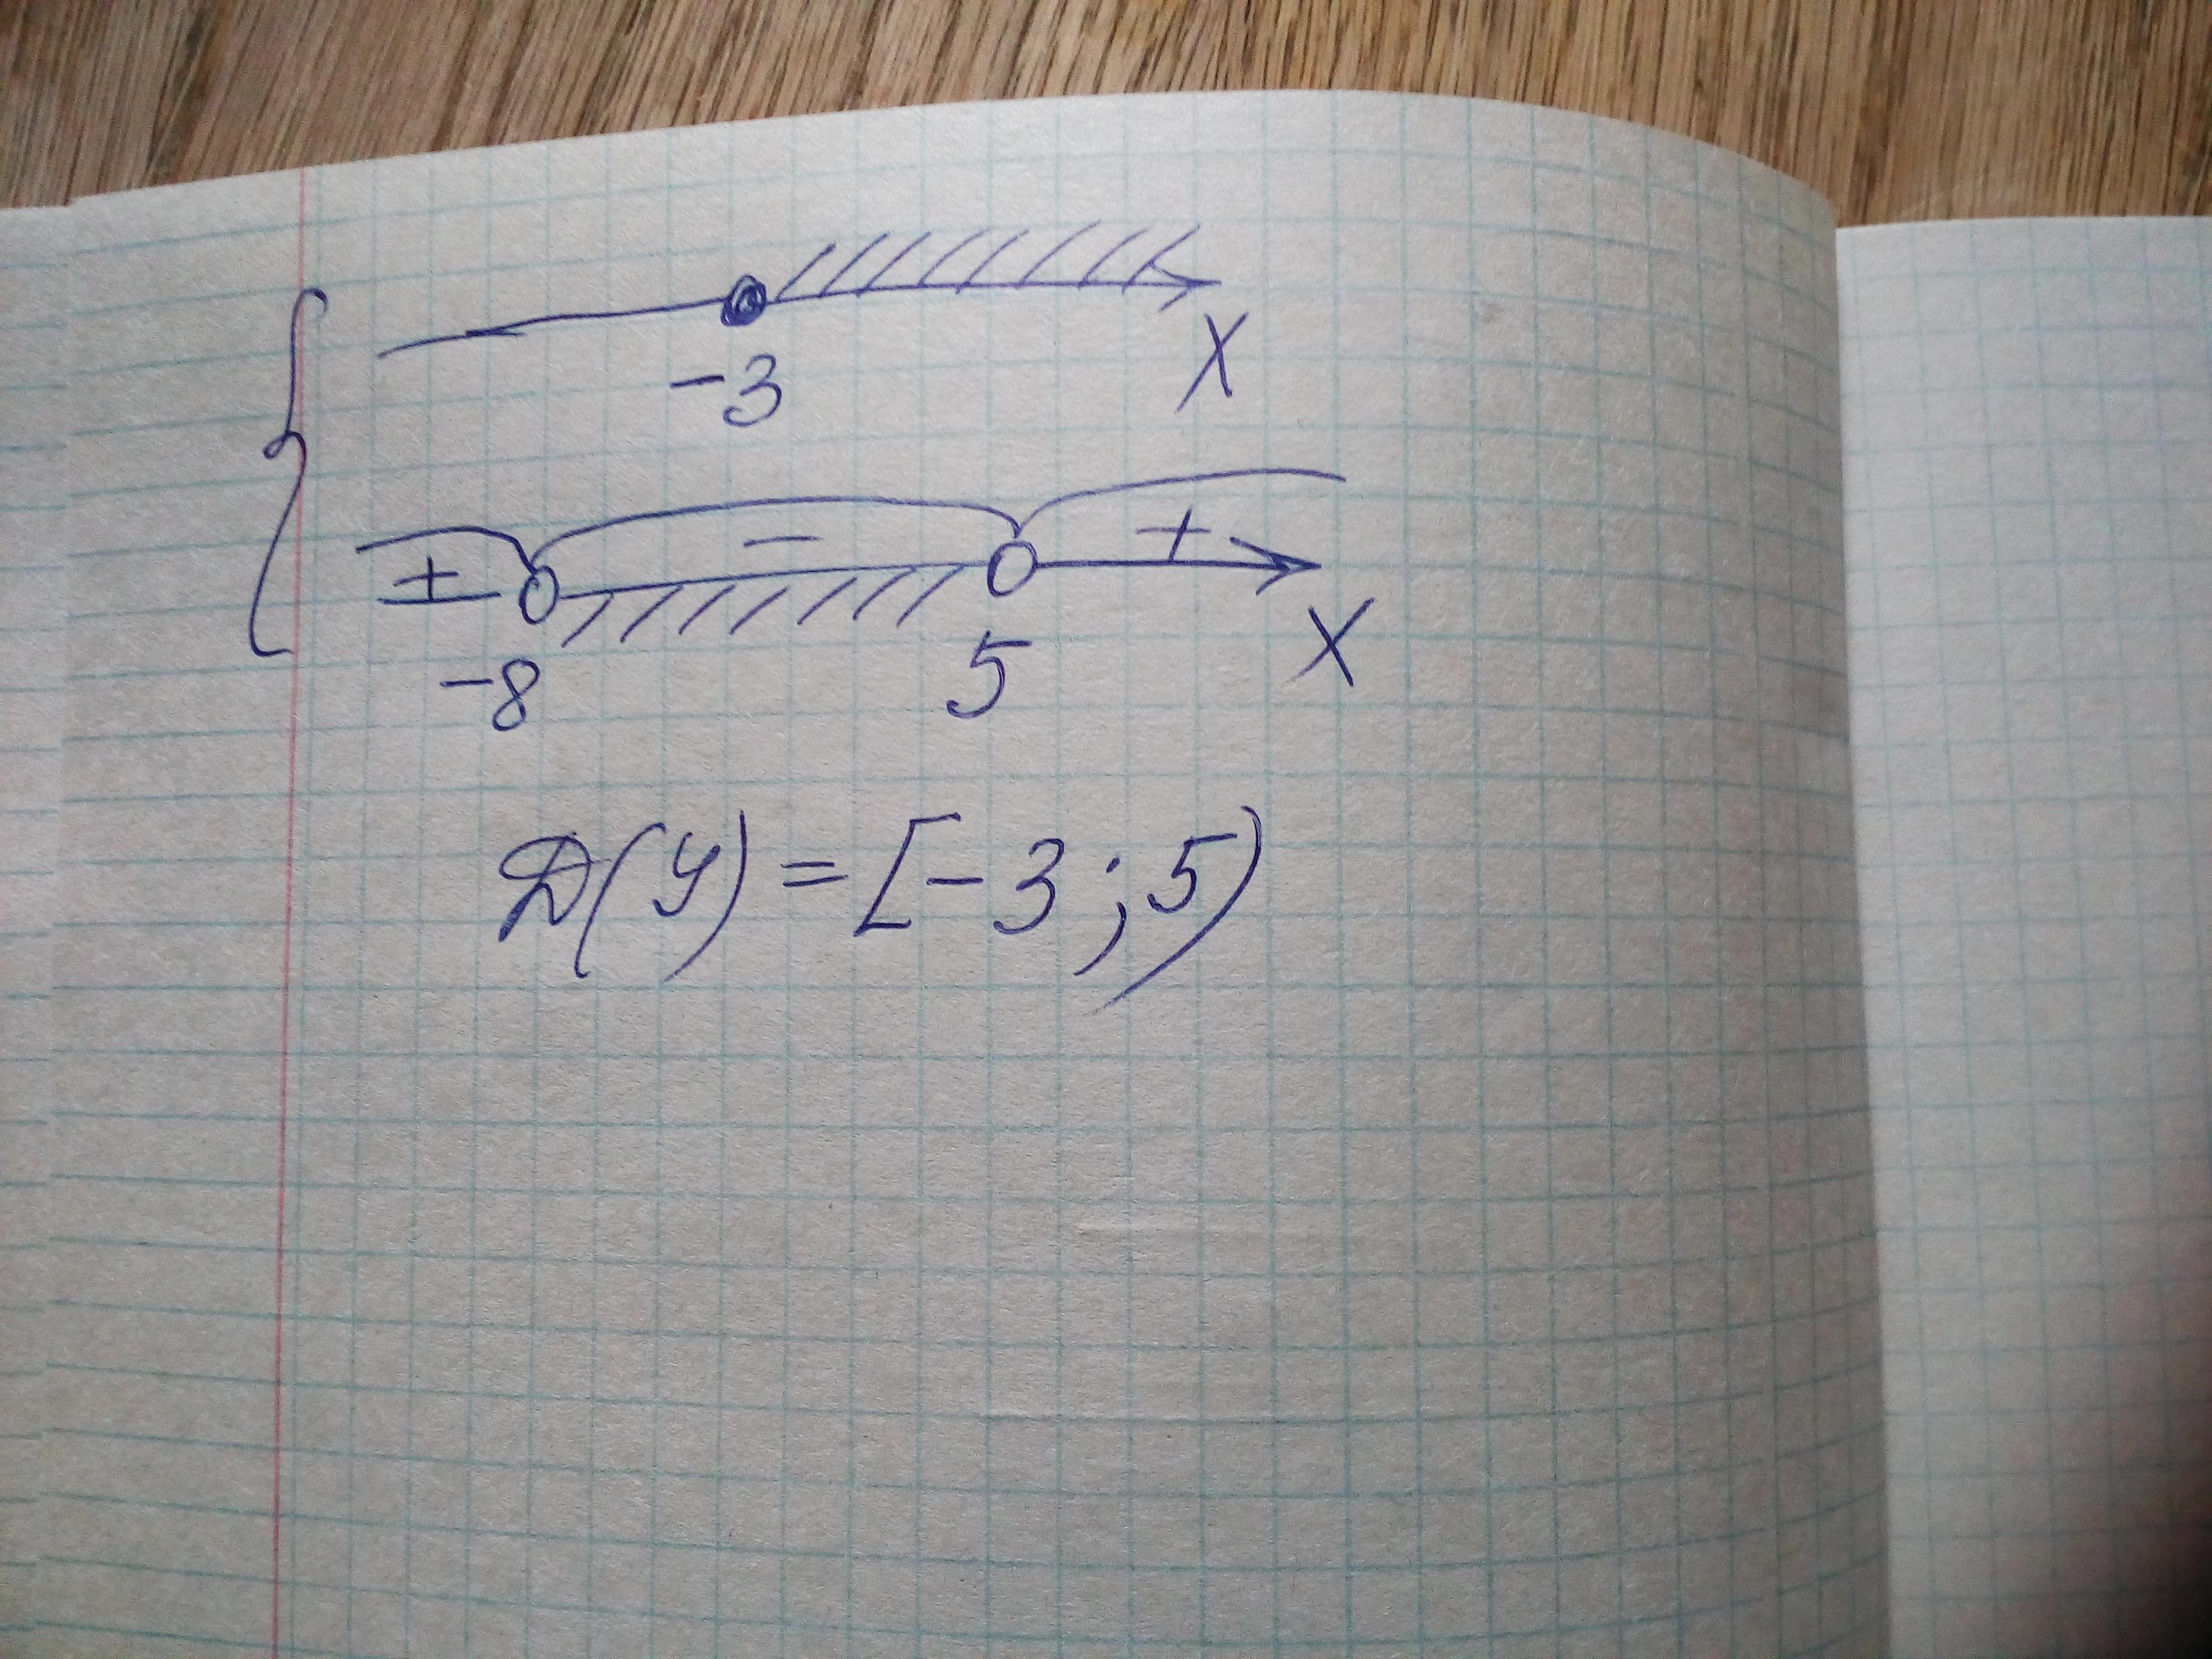 -3
X
+ - +
-8 5 X
D(y) = [-3; 5)